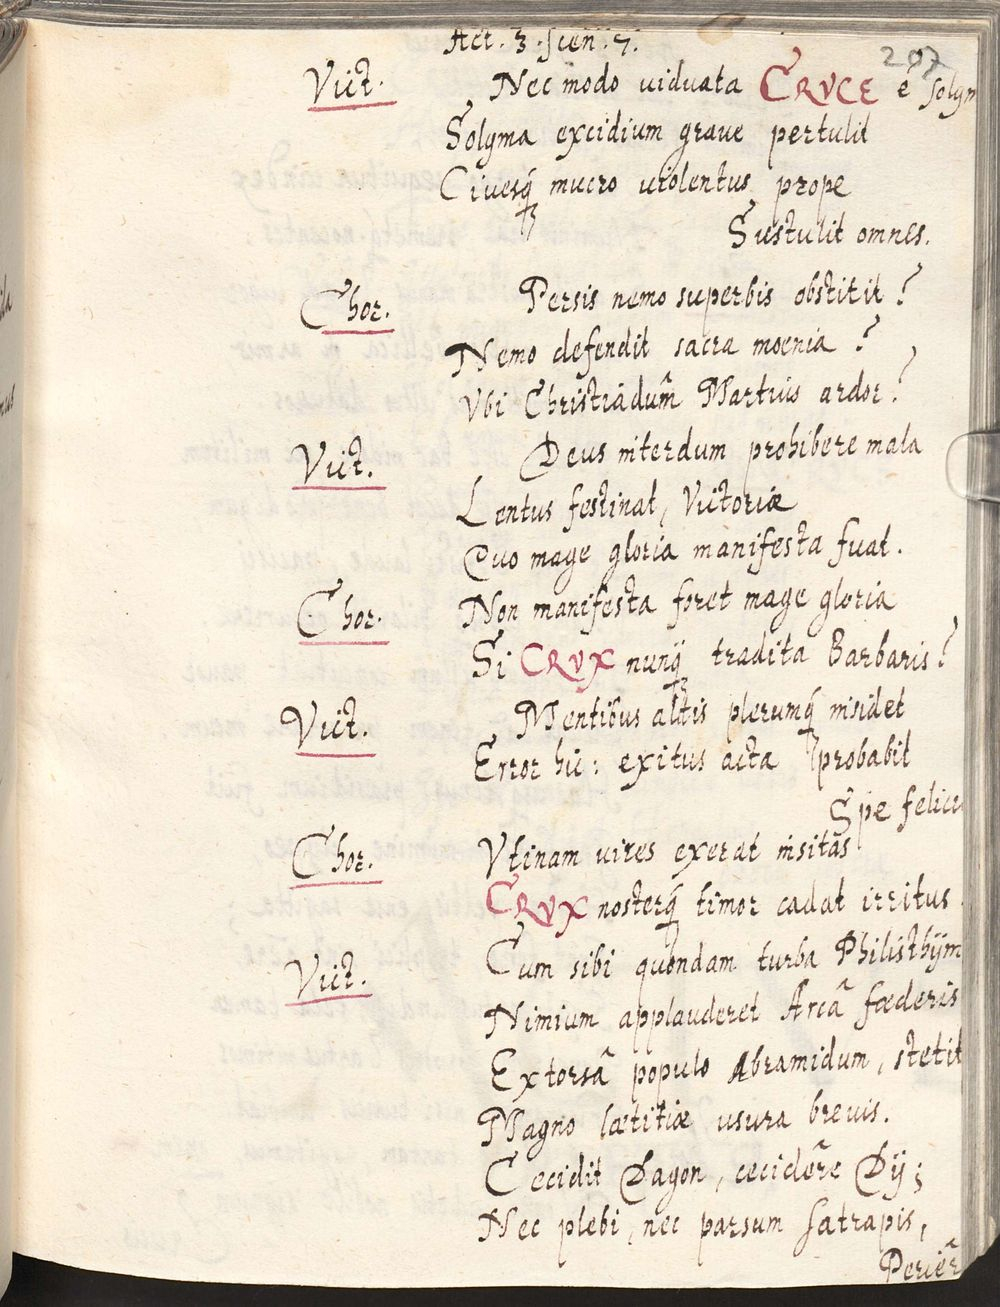 Act. 3. Scen. 7.
207
Vict. Nec modo viduata CRVCE è Solym
Solyma excidium graue pertulit
Ciuesq́ mucro violentus prope
Sustulit omnes.
Chor. Persis nemo superbis obstitit?
Nemo defendit sacra moenia?
Vbi Christiadum̃ Martius ardor?
Vict. Deus interdum prohibere mala
Lentus festinat, Victoriæ
Quo mage gloria manifesta fuat.
Chor. Non manifesta foret mage gloria
Si CRVX nunq́ tradita Barbaris?
Vict. Mentibus altis plerumq́ insidet
Error hic: exitus acta probabit
Spe felici
Chor. Vtinam vires exerat insitas
CRVX nosterq́ timor cadat irritus.
Vict. Cum sibi quondam turba Philisthijm
Nimium applauderet Arcâ fœderis
Extorsâ populo Abramidum, stetit
Magno lætitiæ usura breuis.
Cecidit Dagon, cecidêre Dij;
Nec plebi, nec parsum Satrapis,
Periêr